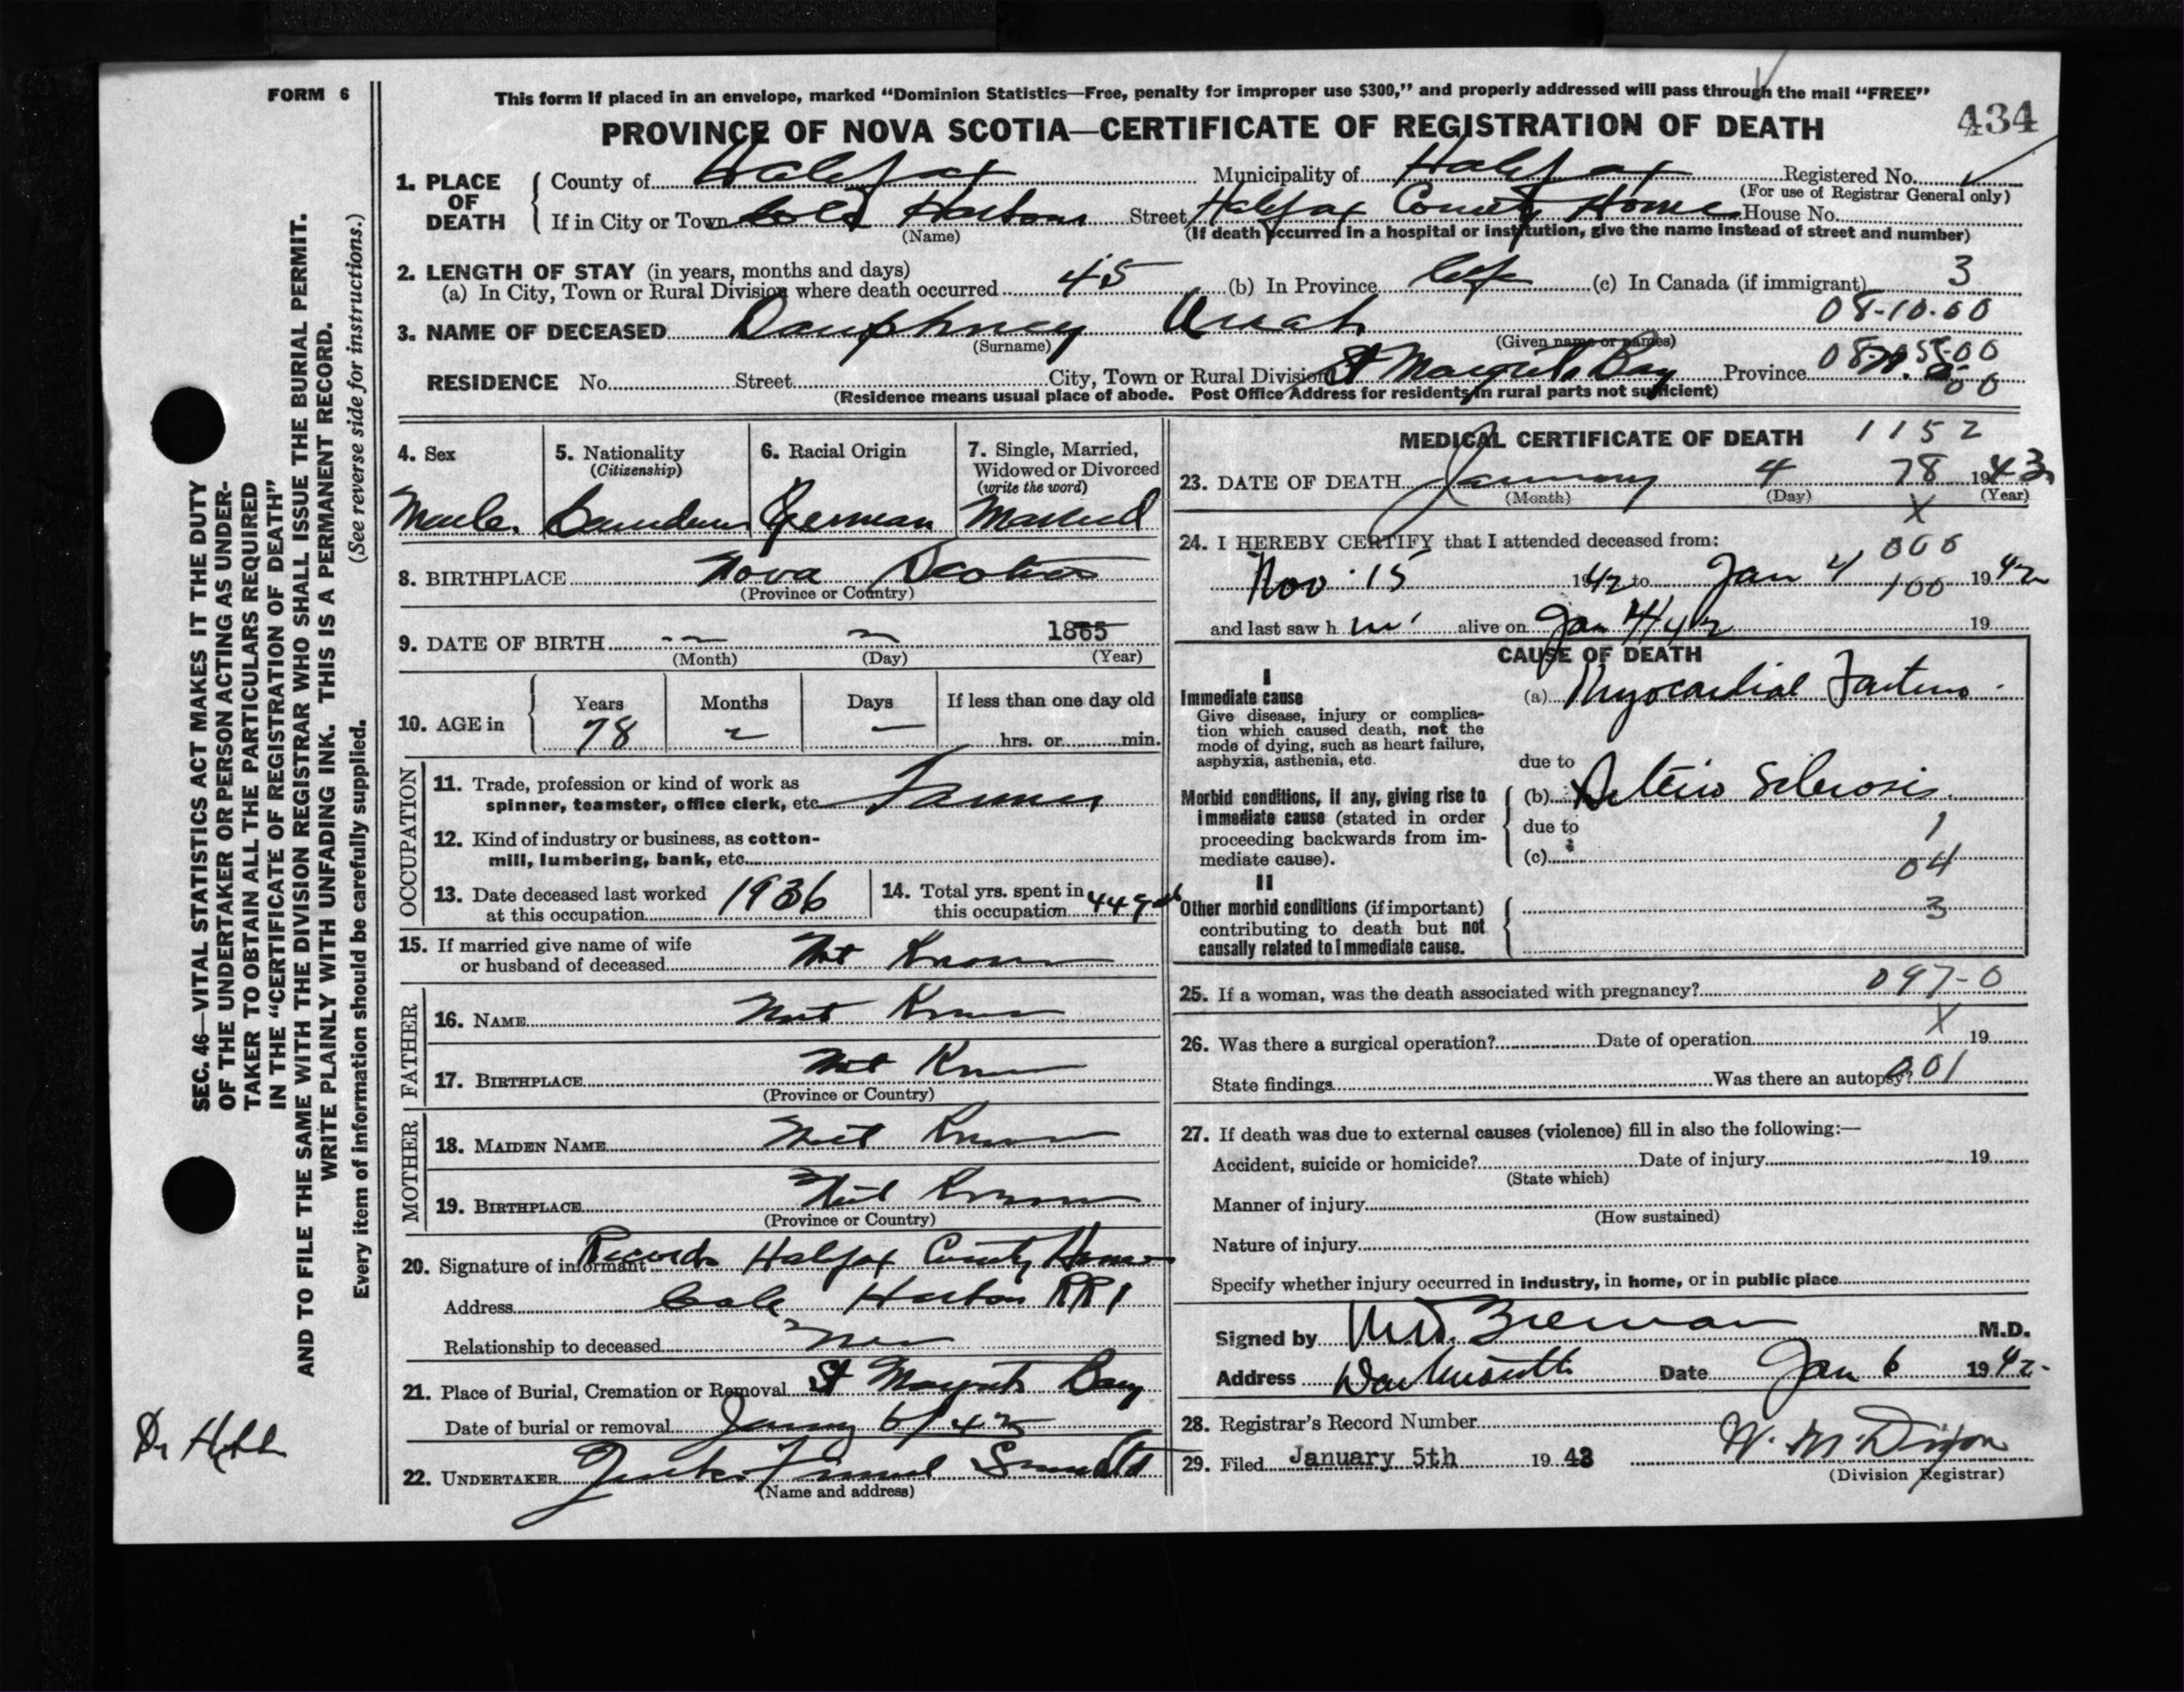 FORM 6
This form if placed in an envelope, marked “Dominion Statistics—Free, penalty for improper use $300,” and properly addressed will pass through the mail “FREE”
434
PROVINCE OF NOVA SCOTIA—CERTIFICATE OF REGISTRATION OF DEATH
1. PLACE OF DEATH
County of Halifax Municipality of Halifax Registered No.
(For use of Registrar General only)
If in City or Town Cole Harbour Street Halifax County Home House No.
(Name) (If death occurred in a hospital or institution, give the name instead of street and number)
2. LENGTH OF STAY (in years, months and days)
(a) In City, Town or Rural Division where death occurred 45 (b) In Province Life (c) In Canada (if immigrant) 3
08-10-00
3. NAME OF DECEASED Dauphney
(Surname) (Given name or names)
08-05-00
RESIDENCE No. Street City, Town or Rural Division St Margrets Bay Province N.S.
00
(Residence means usual place of abode. Post Office Address for residents in rural parts not sufficient)
4. Sex
Male.
5. Nationality
(Citizenship)
Canadian
6. Racial Origin
German
7. Single, Married,
Widowed or Divorced
(write the word)
Married
8. BIRTHPLACE Nova Scotia
(Province or Country)
9. DATE OF BIRTH 1865
(Month) (Day) (Year)
10. AGE in
Years Months Days If less than one day old
78 — — hrs. or min.
OCCUPATION
11. Trade, profession or kind of work as
spinner, teamster, office clerk, etc. Farmer
12. Kind of industry or business, as cotton-
mill, lumbering, bank, etc.
13. Date deceased last worked
at this occupation 1936
14. Total yrs. spent in
this occupation 44
15. If married give name of wife
or husband of deceased Not Known
FATHER
16. NAME Not Known
17. BIRTHPLACE Not Known
(Province or Country)
MOTHER
18. MAIDEN NAME Not Known
19. BIRTHPLACE Not Known
(Province or Country)
20. Signature of informant Records Halifax County Home
Address Cole Harbour RR1
Relationship to deceased
21. Place of Burial, Cremation or Removal St Margrets Bay
Date of burial or removal
22. UNDERTAKER
(Name and address)
MEDICAL CERTIFICATE OF DEATH 1152
23. DATE OF DEATH January 4 78 1943
(Month) (Day) (Year)
X
24. I HEREBY CERTIFY that I attended deceased from:
000
Nov. 15 1942 to Jan 4 1942
100
and last saw h im alive on Jan 4/42 19
CAUSE OF DEATH
I
Immediate cause
Give disease, injury or complica-
tion which caused death, not the
mode of dying, such as heart failure,
asphyxia, asthenia, etc.
(a) Myocardial
due to
Morbid conditions, if any, giving rise to
immediate cause (stated in order
proceeding backwards from im-
mediate cause).
(b) Arterio Sclerosis
due to 1
(c) 04
II
Other morbid conditions (if important)
contributing to death but not
causally related to immediate cause.
3
25. If a woman, was the death associated with pregnancy? 097-0
X
26. Was there a surgical operation? Date of operation 19
State findings Was there an autopsy? 001
27. If death was due to external causes (violence) fill in also the following:—
Accident, suicide or homicide? Date of injury 19
(State which)
Manner of injury
(How sustained)
Nature of injury
Specify whether injury occurred in industry, in home, or in public place
Signed by M.D.
Address Dartmouth Date Jan 6 1942
28. Registrar's Record Number
29. Filed January 5th 1943 W. M. Dixon
(Division Registrar)
SEC. 46—VITAL STATISTICS ACT MAKES IT THE DUTY
OF THE UNDERTAKER OR PERSON ACTING AS UNDER-
TAKER TO OBTAIN ALL THE PARTICULARS REQUIRED
IN THE “CERTIFICATE OF REGISTRATION OF DEATH”
AND TO FILE THE SAME WITH THE DIVISION REGISTRAR WHO SHALL ISSUE THE BURIAL PERMIT.
WRITE PLAINLY WITH UNFADING INK. THIS IS A PERMANENT RECORD.
Every item of information should be carefully supplied. (See reverse side for instructions.)